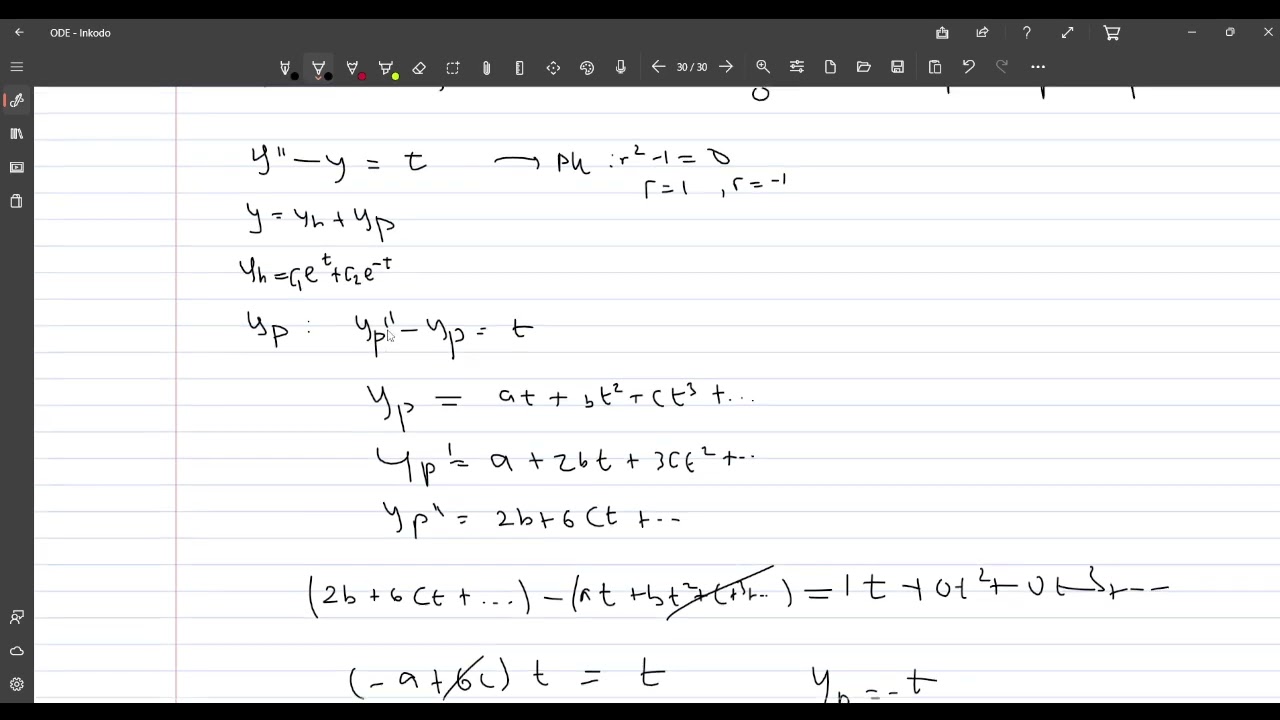 ODE - Inkodo
30 / 30
y" − y = t → Ph : r² -1 = 0
r = 1 , r = -1
y = yh + yp
yh = c₁e^t + c₂e^-t
yp : yp" − yp = t
yp = at + bt² + ct³ + ...
yp' = a + 2bt + 3ct² + ...
yp" = 2b + 6ct + ...
(2b + 6ct + ...) − (at + bt² + ct³+...) = 1t + 0t² + 0t³ + ...
(-a + 6c) t = t yp = -t